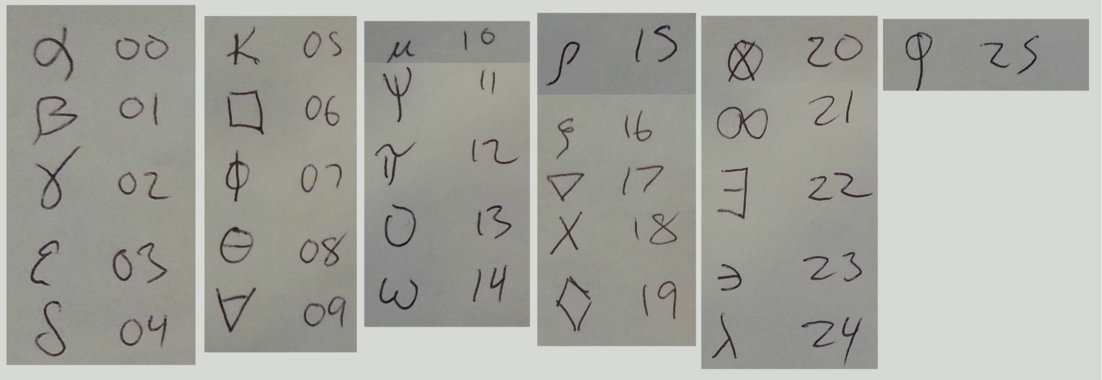 α 00
β 01
γ 02
ε 03
δ 04
K 05
□ 06
ϕ 07
θ 08
∀ 09
μ 10
ψ 11
π 12
O 13
ω 14
ρ 15
ς 16
▽ 17
X 18
◇ 19
⊗ 20
∞ 21
∃ 22
∍ 23
λ 24
φ 25